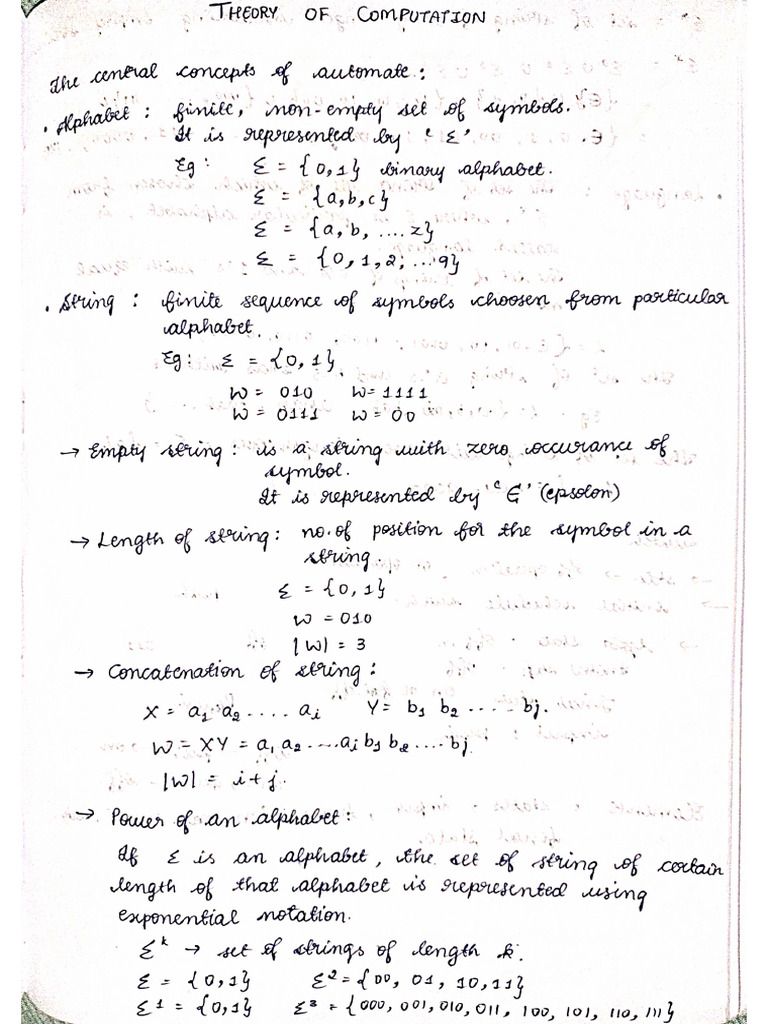 THEORY OF COMPUTATION
The central concepts of automate :
. Alphabet : finite, non-empty set of symbols.
It is represented by 'Σ'
Eg : Σ = {0,1} binary alphabet.
Σ = {a,b,c}
Σ = {a, b, ....z}
Σ = {0, 1, 2, ...9}
. String : finite sequence of symbols choosen from particular
alphabet.
Eg : Σ = {0,1}.
W = 010 W = 1111
W = 0111 W = 00
→ Empty string : is a string with zero occurance of
symbol.
It is represented by 'ϵ' (epsolon)
→ Length of string : no. of position for the symbol in a
string.
Σ = {0,1}
W = 010
|W| = 3
→ Concatenation of string :
X = a1 a2 .... ai Y = b1 b2 ..... bj.
W = XY = a1 a2 .....ai b1 b2 .... bj
|W| = i + j.
→ Power of an alphabet :
If Σ is an alphabet, the set of string of certain
length of that alphabet is represented using
exponential notation.
Σ^k → set of strings of length k.
Σ = {0,1} Σ² = {00, 01, 10, 11}
Σ¹ = {0,1} Σ³ = {000, 001, 010, 011, 100, 101, 110, 111}